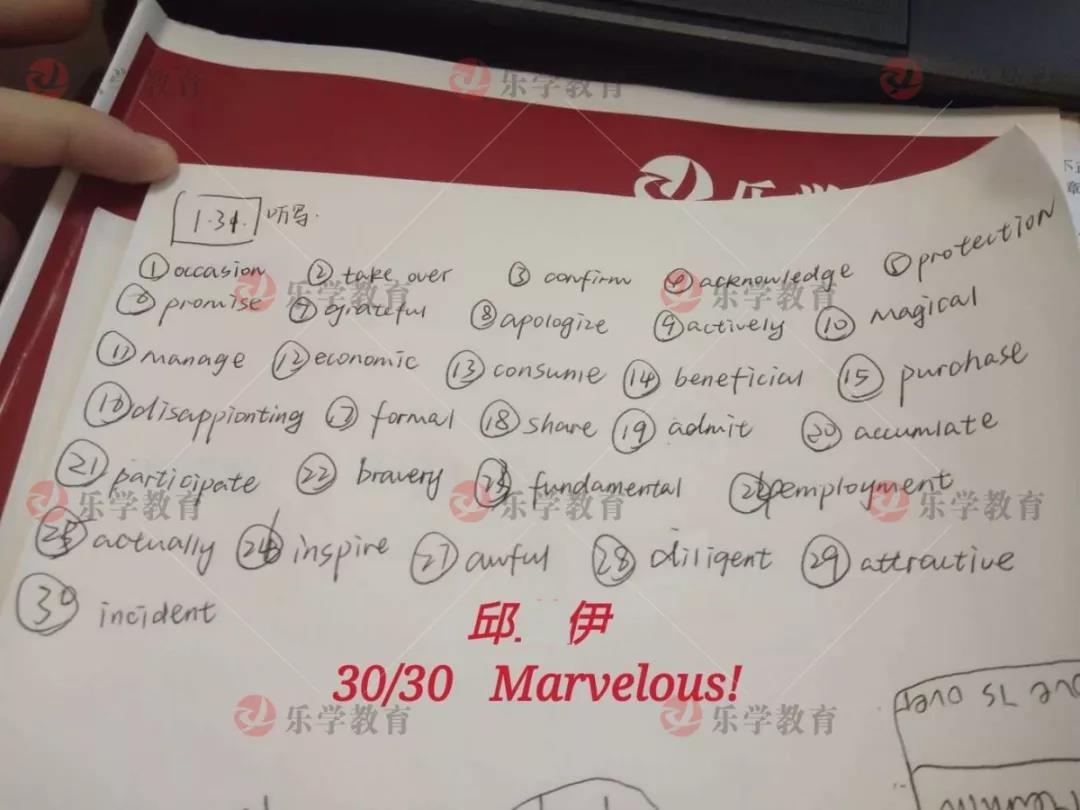 乐学教育
1.31. 听写.
① occasion ② take over ③ confirm ④ acknowledge ⑤ protection
⑥ promise ⑦ grateful ⑧ apologize ⑨ actively ⑩ magical
⑪ manage ⑫ economic ⑬ consume ⑭ beneficial ⑮ purchase
⑯ disappionting ⑰ formal ⑱ share ⑲ admit ⑳ accumlate
㉑ participate ㉒ bravery ㉓ fundamental ㉔ employment
㉕ actually ㉖ inspire ㉗ awful ㉘ diligent ㉙ attractive
㉚ incident
邱 伊
30/30 Marvelous!
is over